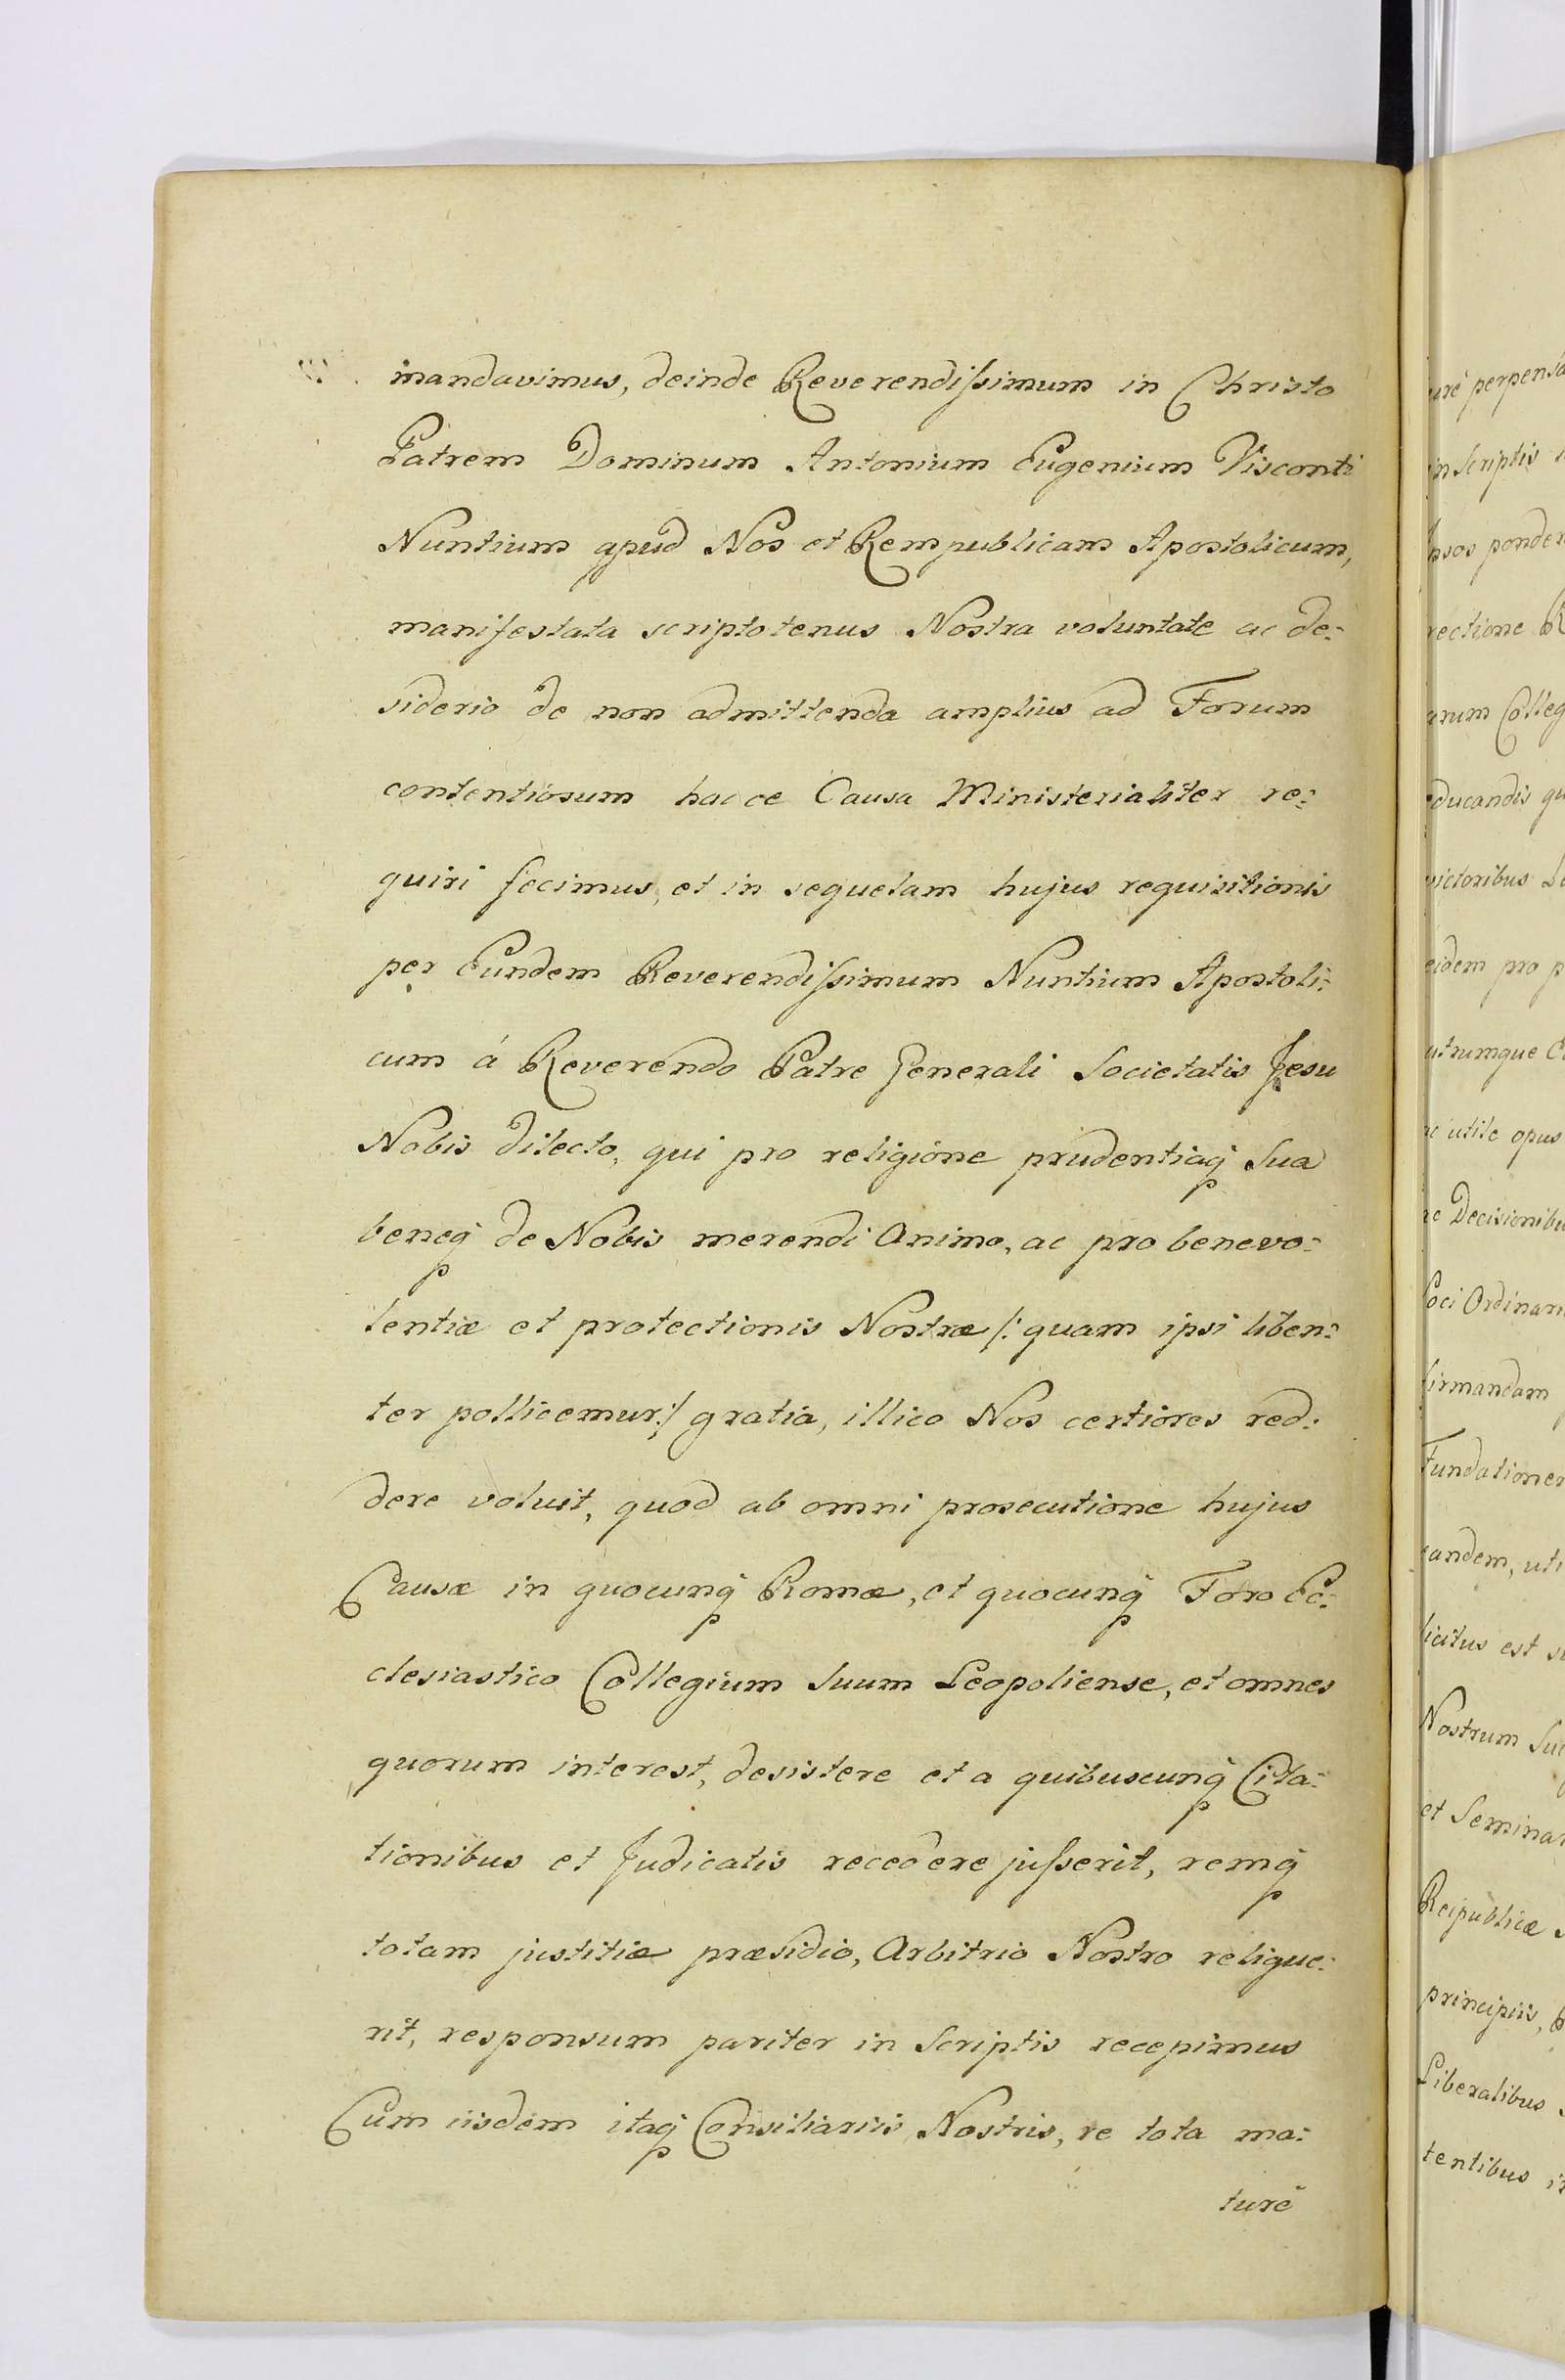 mandavimus, deinde Reverendiſsimum in Christo
Patrem Dominum Antonium Eugenium Visconti
Nuntium apud Nos et Rempublicam Apostolicum,
manifestata scriptotenus Nostra voluntate ac de:
siderio de non admittenda amplius ad Forum
contentiosum hacce Causa Ministerialiter re:
quiri fecimus, et in sequelam hujus requisitionis
per Eundem Reverendiſsimum Nuntium Apostoli:
cum á Reverendo Patre Generali Societatis Jesu
Nobis dilecto, qui pro religione prudentiaq̃ Sua
beneq̃ de Nobis merendi Animo, ac pro benevo:
lentiæ et protectionis Nostræ /: quam ipsi liben:
ter pollicemur :/ gratia, illico Nos certiores red:
dere voluit, quod ab omni prosecutione hujus
Causæ in quocunq̃ Romæ, et quocunq̃ Foro Ec:
clesiastico Collegium Suum Leopoliense, et omnes
quorum interest, desistere et a quibuscunq̃ Cita:
tionibus et Judicatis recedere juſserit, remq̃
totam justitiæ præsidio, Arbitrio Nostro relique:
rit, responsum pariter in Scriptis recepimus
Cum iisdem itaq̃ Consiliariis Nostris, re tota ma:
turé
uré perpensa
in Scriptis
ponder
rectione R
arum Colleg
educandis qu
victoribus
eidem pro p
utrumque
ac utile opus
Decisionibu
Loci Ordinari
firmandam
Fundationem
eandem, uti
licitus est
Nostrum Su
et Seminar
Reipublicæ
principiis,
Liberalibus
tentibus